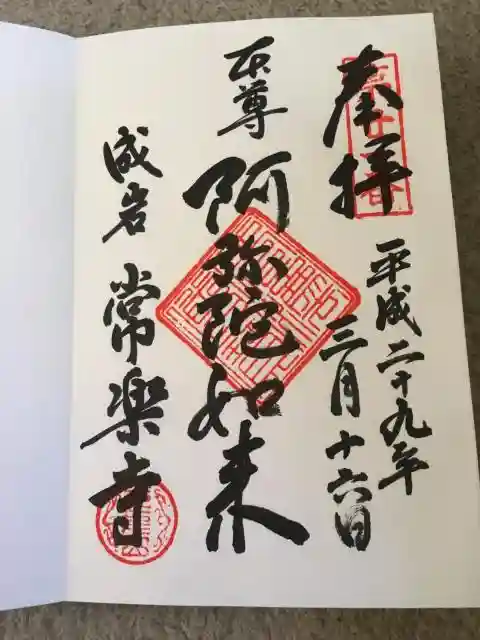 奉拝
平成二十九年
三月十六日
本尊
阿弥陀如来
成岩 常楽寺